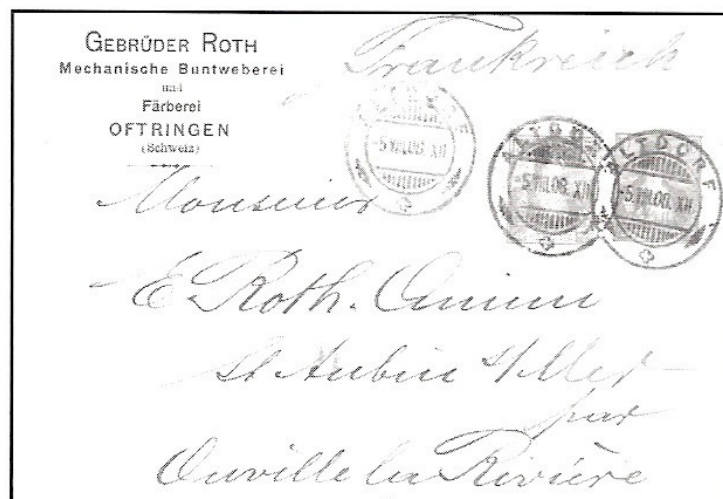 GEBRÜDER ROTH
Mechanische Buntweberei
und
Färberei
OFTRINGEN
(Schweiz)
Frankreich
ALTDORF
-5.VIII.08.XII
ALTDORF
-5.VIII.08.XII
Monsieur
E. Roth-
St Aubin s/Mer
par
Ouville la Rivière